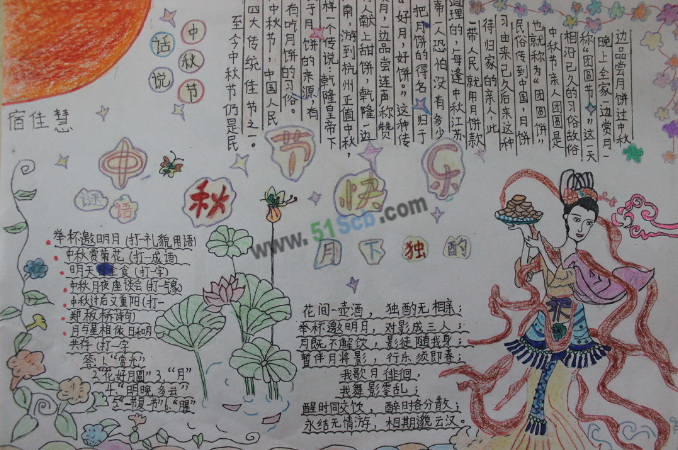 中秋节
话说
宿佳慧
至今中秋节仍是民
四大传统佳节之一。
中秋节,中国人民
有吃月饼的习俗。
于月饼的来源,有
样一个传说,乾隆皇帝下
南,游到杭州正值中秋,
献上甜饼,乾隆一边
月,边品尝连声称赞
"好月,好饼。"这种传
把月饼的得名归于
南一人恐怕没有多少
道理的,每逢中秋江苏
带人民就用月饼款
待归家的亲人,此
习由来已久后来这种
民俗传到中国,月饼
也就称为"团圆饼"
中秋节亲人团圆是
相沿已久的习俗故俗
称"团圆节"。这一天
晚上全家一边赏月一
边品尝月饼过中秋
中秋节快乐
谜语
举杯邀明月(打一礼貌用语)
中秋赏菊花(打一成语)
明天食(打一字)
中秋月夜座谈会(打一
中秋过后又重阳(打一
月与星相依日和月
共存(打一字
答:1."赏光"
2."花好月圆"3."月"
月下独酌
花间一壶酒,独酌无相亲;
举杯邀明月,对影成三人;
月既不解饮,影徒随我身;
暂伴月将影,行乐须即春;
我歌月徘徊,
我舞影零乱;
醒时间交饮,醉时各分散;
永结无情游,相期邈云汉。
www.51Scb.com